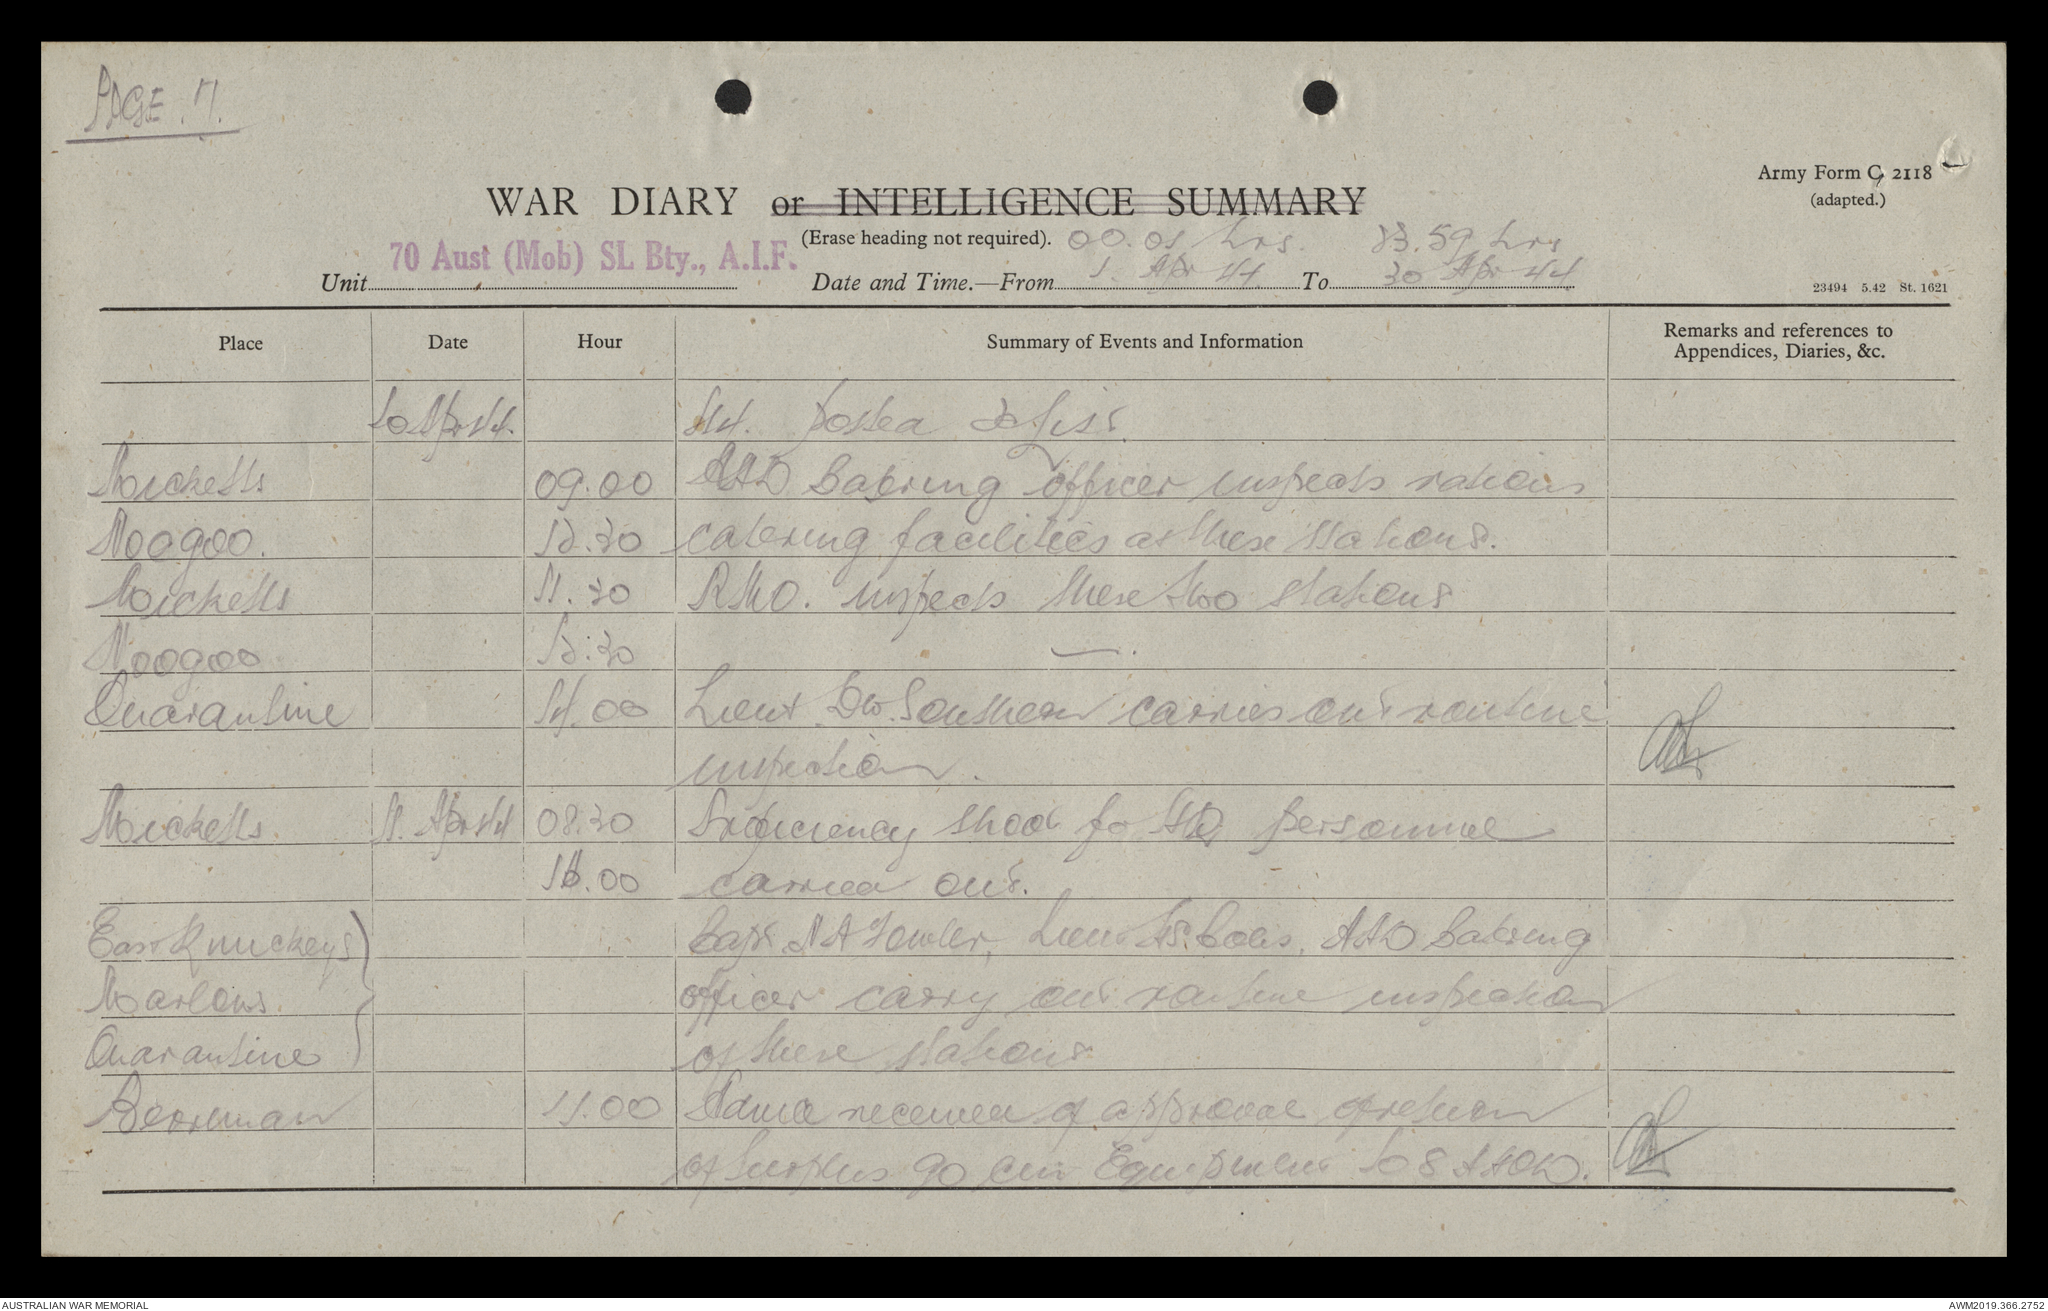 PAGE 7.
Army Form C, 2118
(adapted.)
WAR DIARY or INTELLIGENCE SUMMARY
(Erase heading not required). 00.01 hrs. 23.59 hrs
70 Aust (Mob) SL Bty., A.I.F.
Unit Date and Time.—From 1. Apr 44. To 30 Apr 44
23494 5.42 St. 1621
Place Date Hour Summary of Events and Information Remarks and references to Appendices, Diaries, &c.
10 Apr 44. posted
Micketts 09.00 Catering officer inspects rations
Noogoo. catering facilities at these stations.
Micketts 11.30 RMO. inspects these two stations
Noogoo
Quarantine 14.00 Lieut Southern carries out routine
inspection.
Micketts 11. Apr 44 08.30 shoot personnel
16.00 carried out.
East Knuckeys Capt. N A Fowler, Lieut Catering
officer carry out routine inspection
Quarantine of these stations
Berrimah 11.00 Advice received of approval of return
of surplus 90 cm Equipment to 8 AAOW.
AUSTRALIAN WAR MEMORIAL AWM2019.366.2752